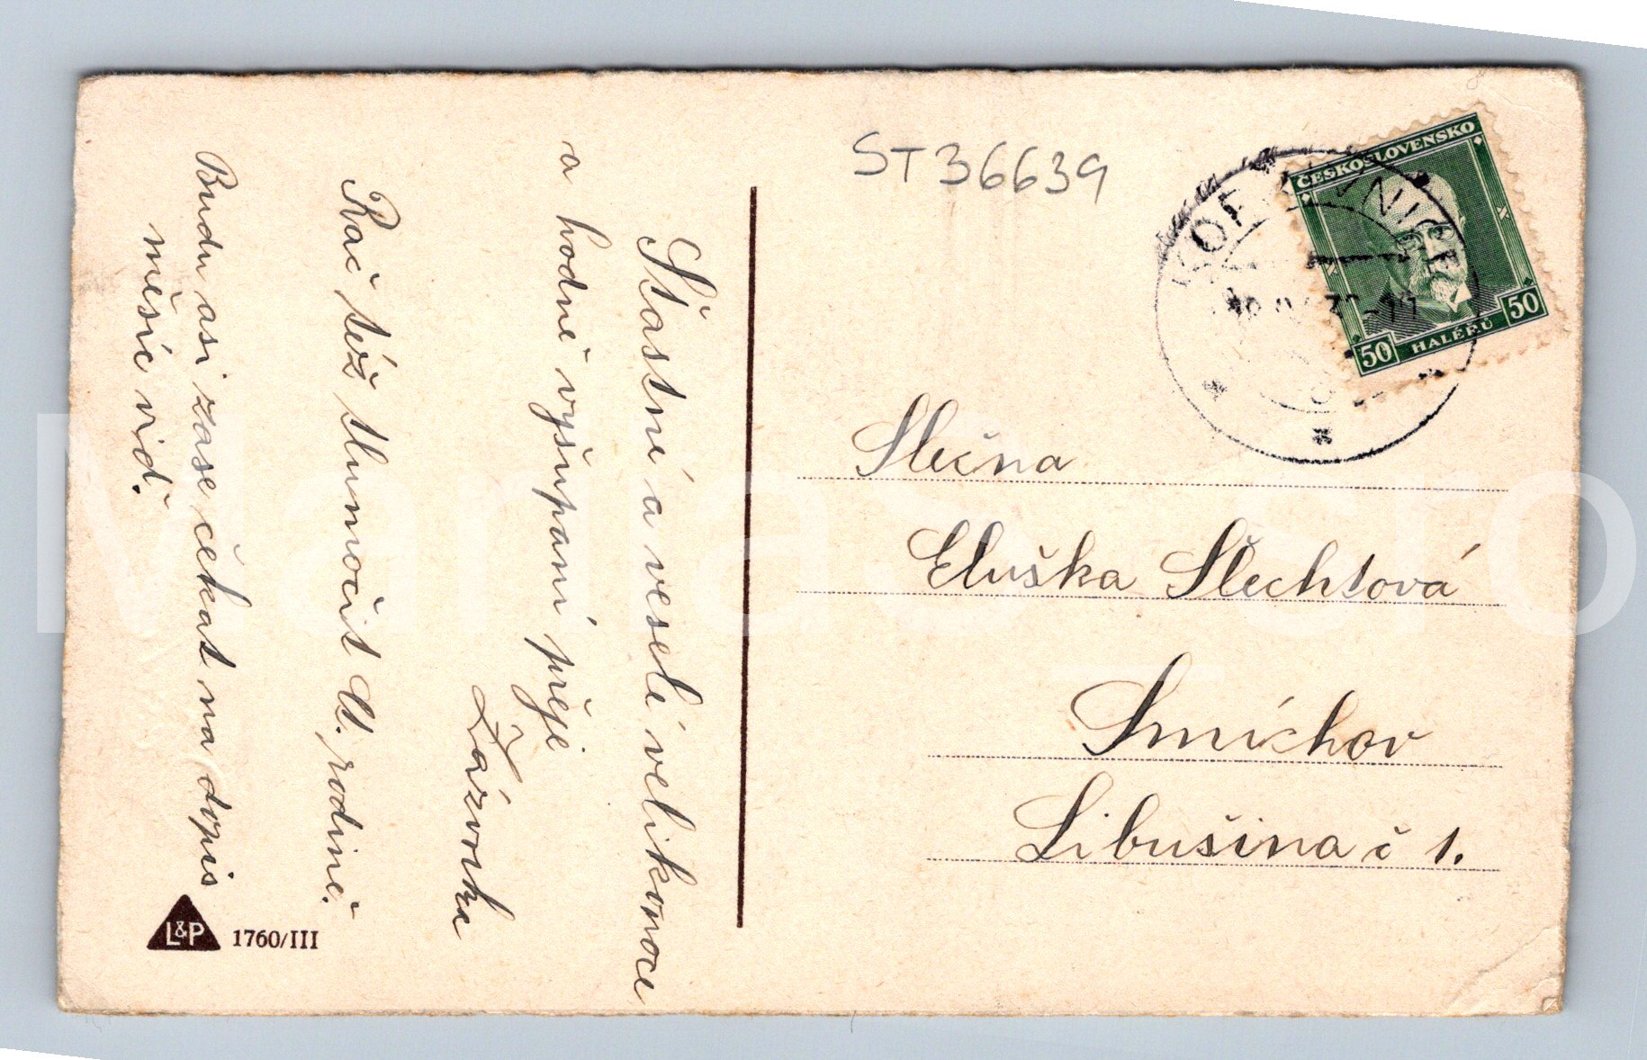 ST36639
ČESKOSLOVENSKO
50 HALÉŘŮ 50
Šťastné a veselé velikonoce
a hodně vyšupání přeje
Zázvorka
Rač též tlumočit Ct. rodině.
Budu asi zase čekat na dopis
měsíc viď.
Slečna
Eluška Šlechtová
Smíchov
Libušina č 1.
L&P 1760/III